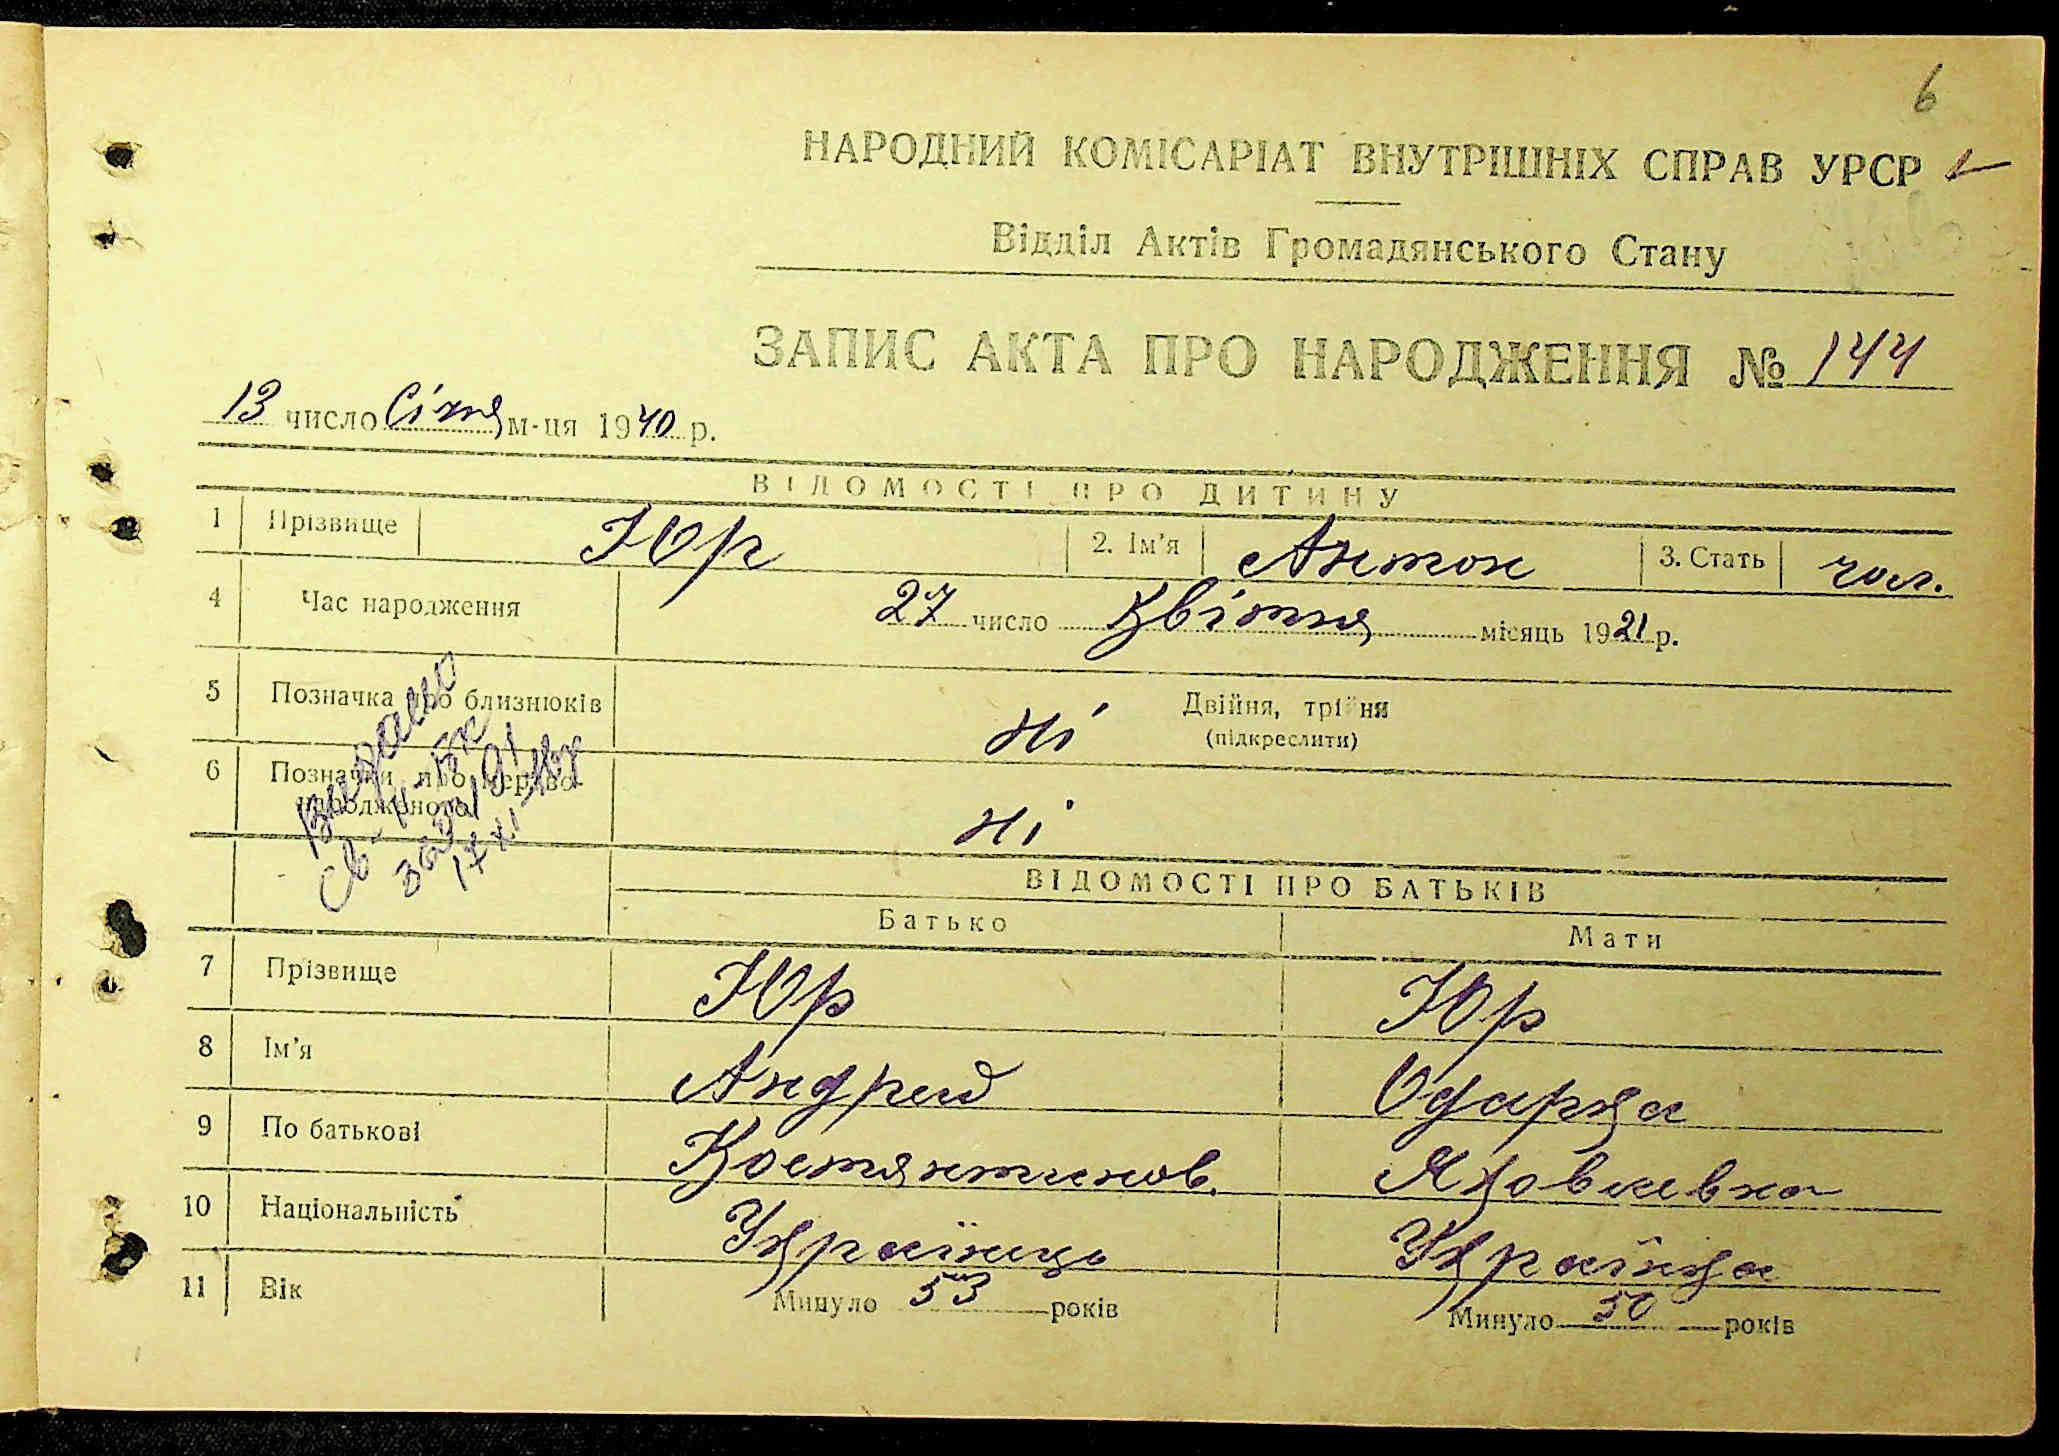 6
НАРОДНИЙ КОМІСАРІАТ ВНУТРІШНІХ СПРАВ УРСР
Відділ Актів Громадянського Стану
ЗАПИС АКТА ПРО НАРОДЖЕННЯ № 144
13 число Січня м-ця 1940 р.
ВІДОМОСТІ ПРО ДИТИНУ
1 Прізвище Юр 2. Ім'я Антон 3. Стать чол.
4 Час народження 27 число Квітня місяць 1921 р.
5 Позначка про близнюків ні Двійня, трійня
(підкреслити)
6 Позначки про мертво-
народженого ні
Видано
ВІДОМОСТІ ПРО БАТЬКІВ
Батько Мати
7 Прізвище Юр Юр
8 Ім'я Андрей Одарка
9 По батькові Костянтинов. Яковлевна
10 Національність Українець Українка
11 Вік Минуло 53 років Минуло 50 років